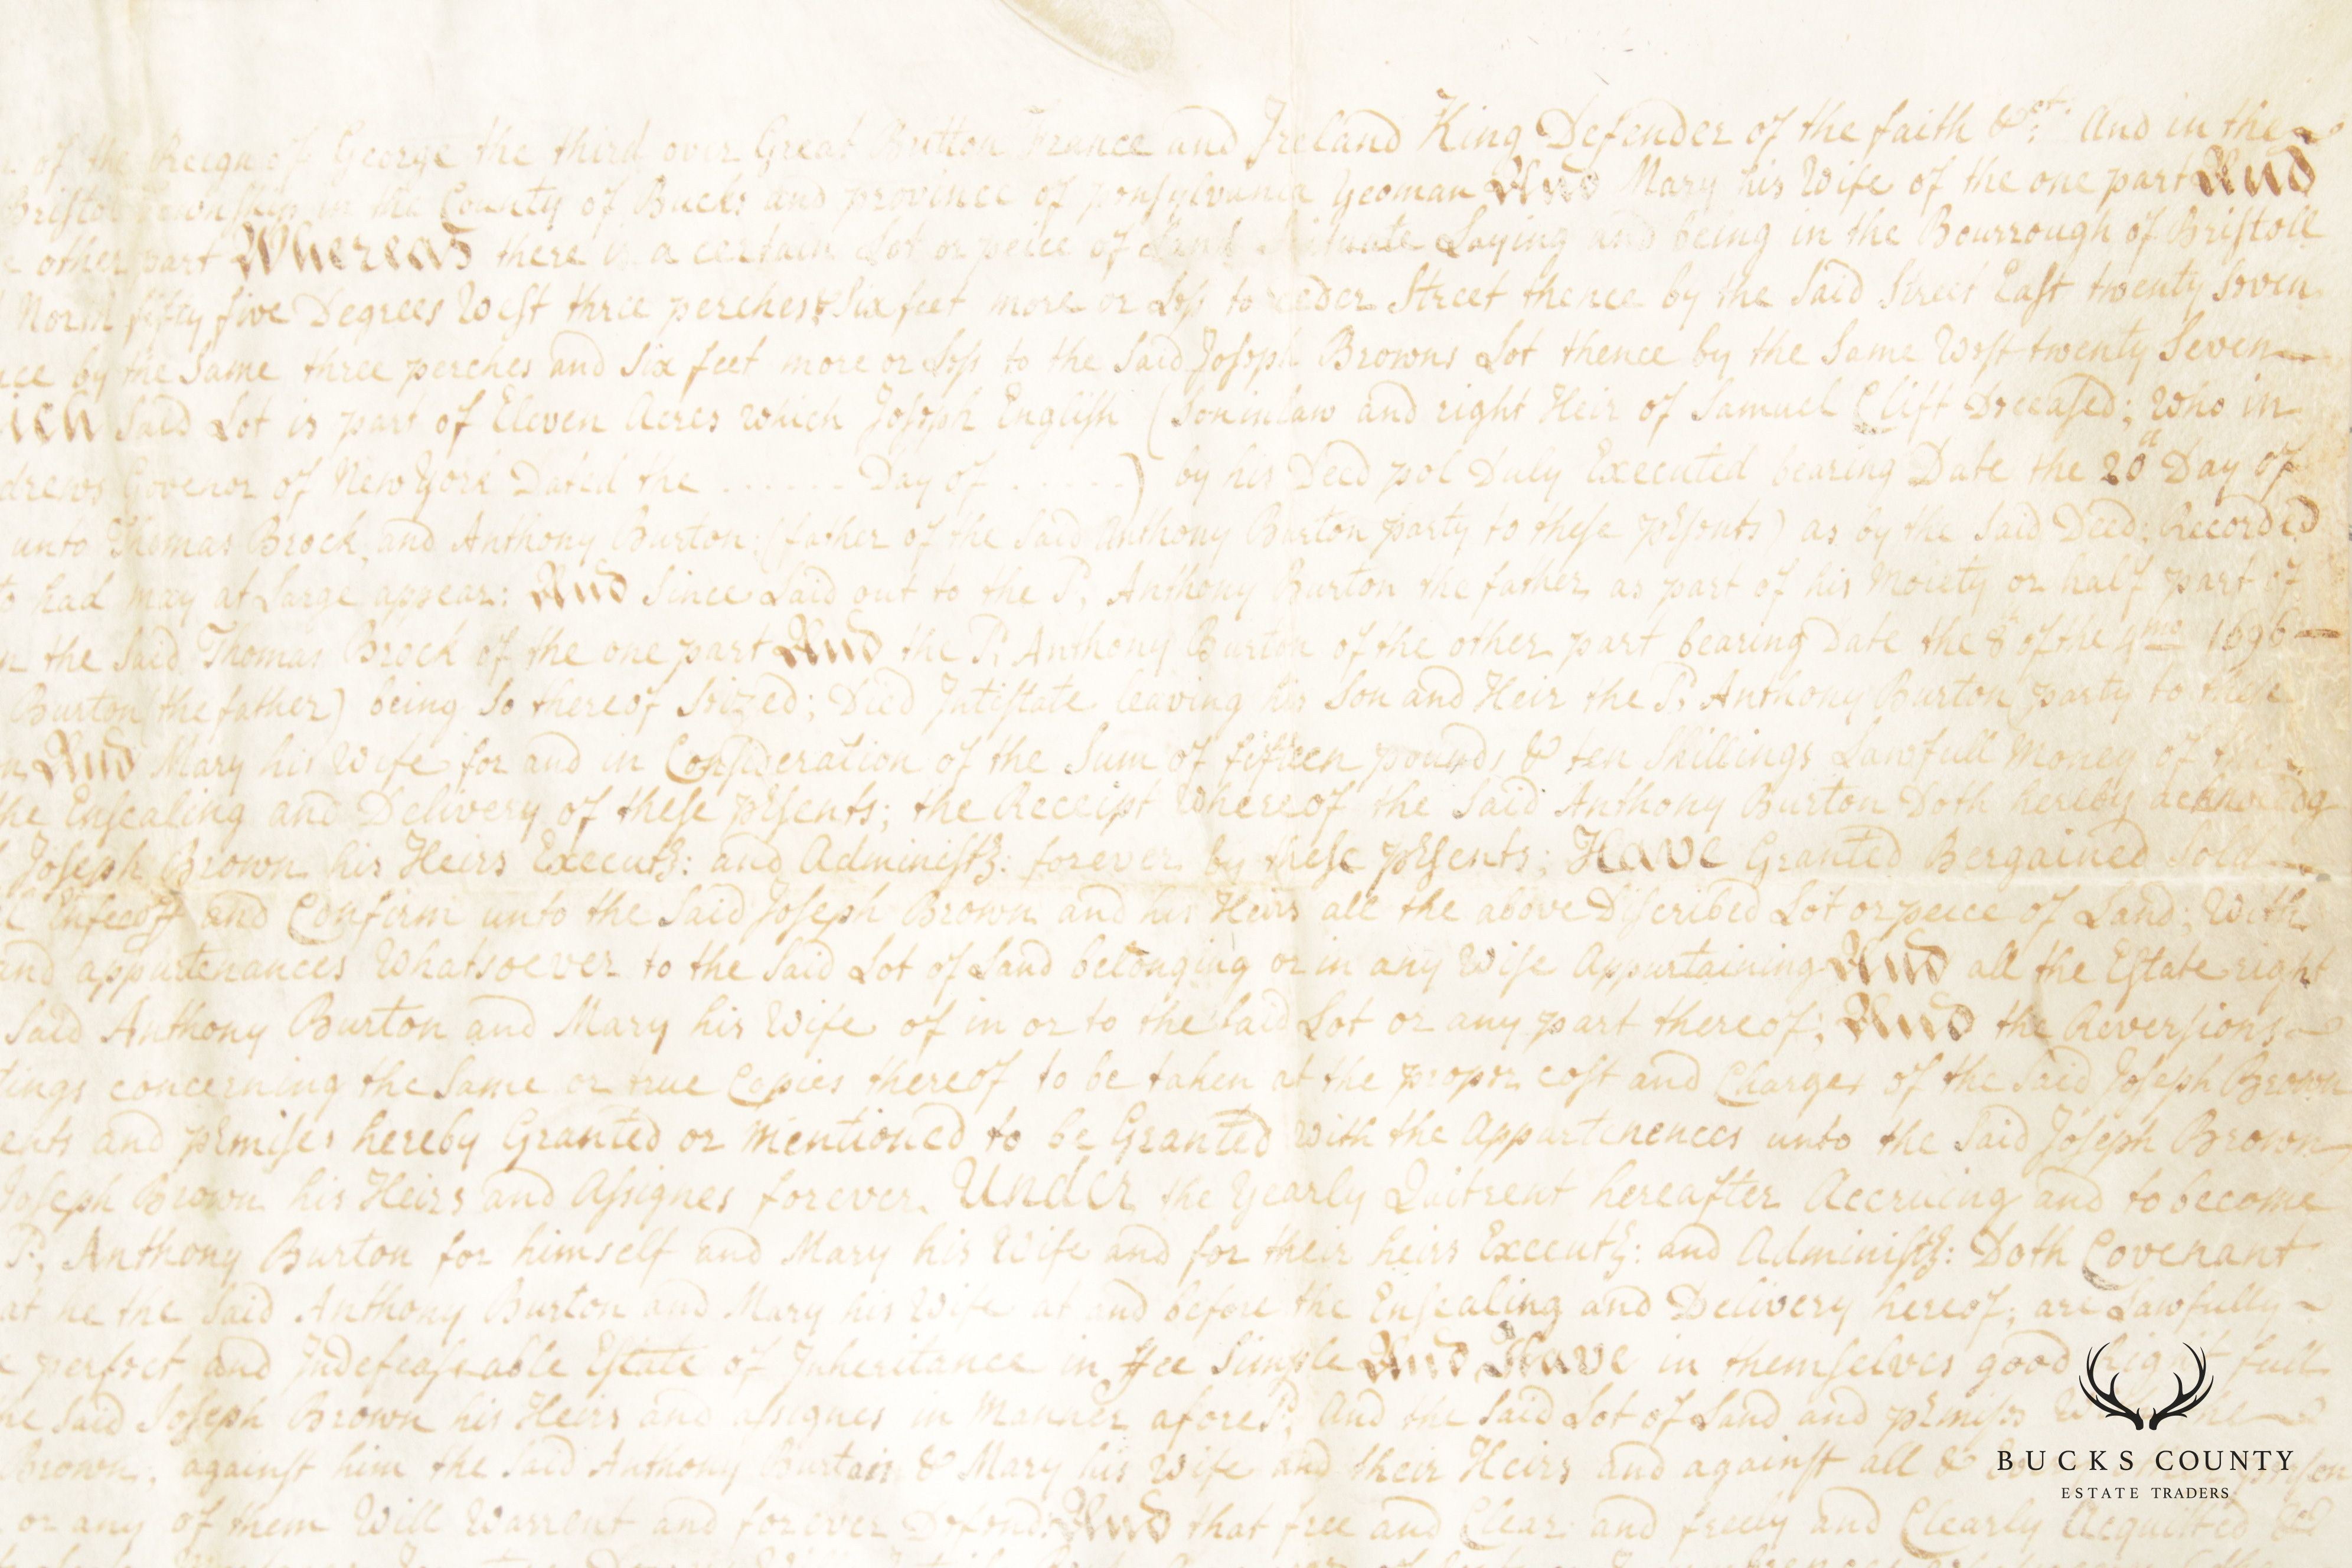 of the Reign of George the third over Great Britton France and Ireland King Defender of the faith &ct: And in the
Bristol Township in the County of Bucks and province of pensylvania Yeoman And Mary his Wife of the one part And
other part Whereas there is a certain Lot or peice of Land Scituate Laying and being in the Bourrough of Bristoll
North fifty five Degrees West three perches & Six feet more or Less to ceder Street thence by the Said Street East twenty Seven
by the Same three perches and Six feet more or Less to the Said Joseph Browns Lot thence by the Same West twenty Seven
Said Lot is part of Eleven Acres which Joseph English (Soninlaw and right Heir of Samuel Clift Deceased; who in
Govenor of New York Dated the ...... Day of ......) by his Deed pol Duly Executed bearing Date the 20th Day of
unto Thomas Brock and Anthony Burton; (father of the Said Anthony Burton party to these presents) as by the Said Deed; Recorded
had may at Large appear: And Since Laid out to the Sd. Anthony Burton the father as part of his Moiety or half part of
the Said Thomas Brock of the one part And the Sd. Anthony Burton of the other part bearing Date the 8 of the 4mo 1696
Burton (the father) being So thereof Seized; Died Intestate leaving his Son and Heir the Sd. Anthony Burton party to these
And Mary his Wife for and in Consideration of the Sum of fifteen pounds & ten Shillings Lawfull Money of the
the Ensealing and Delivery of these presents; the Receipt whereof the Said Anthony Burton Doth hereby acknowledg
Joseph Brown his Heirs Executrs: and Administrs: forever by these presents; Have Granted Bergained Sold
Enfeoff and Confirm unto the Said Joseph Brown and his Heirs all the above Discribed Lot or peice of Land; With
and appurtenances Whatsoever to the Said Lot of Land belonging or in any Wise Appurtaining And all the Estate right
Said Anthony Burton and Mary his Wife of in or to the Said Lot or any part thereof; And the Reversions
concerning the Same or true Copies thereof to be taken at the proper cost and Charges of the Said Joseph Brown
and premises hereby Granted or mentioned to be Granted with the Appurtenences unto the Said Joseph Brown
Joseph Brown his Heirs and Assignes forever. Under the Yearly Quitrent hereafter Accruing and to become
Sd. Anthony Burton for himself and Mary his Wife and for their heirs Executrs: and Administrs: Doth Covenant
at he the Said Anthony Burton and Mary his Wife at and before the Ensealing and Delivery hereof; are Lawfully
perfect and Indefeaseable Estate of Inheritance in Fee Simple And Have in themselves good right full
Said Joseph Brown his Heirs and assignes in Manner aforeSd. And the Said Lot of Land and premises
Brown; against him the Said Anthony Burtain & Mary his Wife and their Heirs and against all &
or any of them Will Warrent and forever Defend And that free and Clear and freely and Clearly Acquitted
BUCKS COUNTY
ESTATE TRADERS